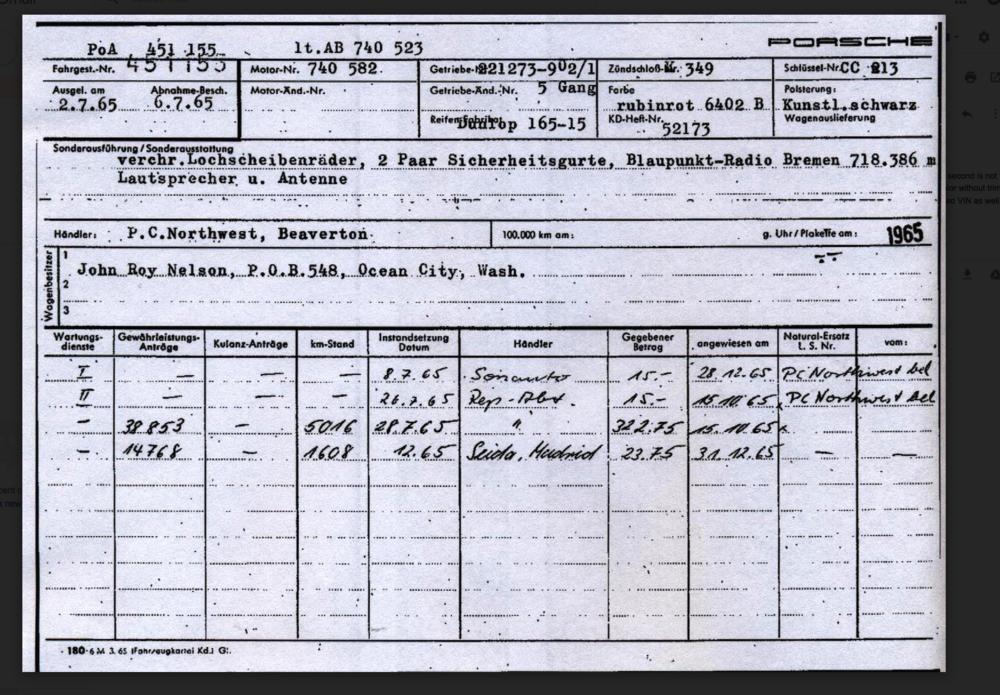 PoA 451 155 lt.AB 740 523 PORSCHE
Fahrgest.-Nr. 451155 Motor-Nr. 740 582 Getriebe- 221273-902/1 Zündschloß-Nr. 349 Schlüssel-Nr. CC 213
Ausgel. am Abnahme-Besch. Motor-Änd.-Nr. Getriebe-Änd.-Nr. 5 Gang Farbe Polsterung:
2.7.65 6.7.65 rubinrot 6402 B Kunstl.schwarz
Reifenfabrikat Dunlop 165-15 KD-Heft-Nr. 52173 Wagenauslieferung
Sonderausführung/Sonderausstattung
verchr.Lochscheibenräder, 2 Paar Sicherheitsgurte, Blaupunkt-Radio Bremen 718.386 m
Lautsprecher u. Antenne
Händler: P.C.Northwest, Beaverton 100.000 km am: g. Uhr/Plakette am: 1965
Wagenbesitzer
1 John Roy Nelson, P.O.B.548, Ocean City, Wash.
2
3
Wartungs-dienste Gewährleistungs-Anträge Kulanz-Anträge km-Stand Instandsetzung Datum Händler Gegebener Betrag angewiesen am Natural-Ersatz L. S. Nr. vom:
I — — — 8.7.65 Sonauto 15.- 28.12.65 PC Northwest bel
II — — — 26.7.65 Rep-Abt. 15.- 15.10.65 PC Northwest bel
— 38853 — 5016 28.7.65 " 322.75 15.10.65
— 14768 — 1608 12.65 Seida, Madrid 23.75 31.12.65 — —
180-6 M 3. 65 (Fahrzeugkartei Kd.) G.